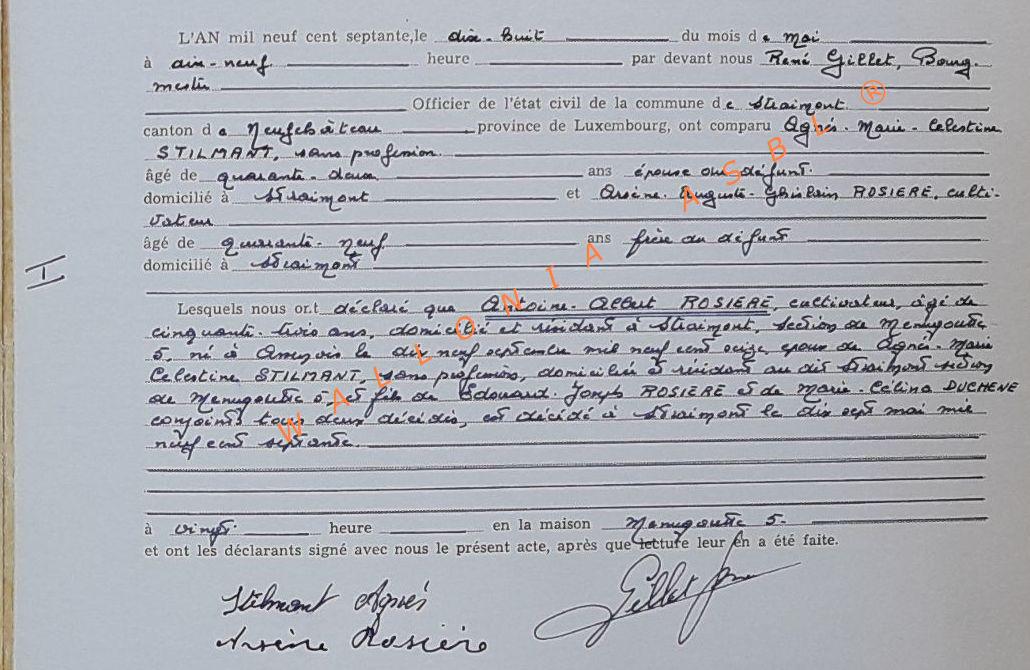 L'AN mil neuf cent septante,le dix-huit du mois de Mai
à dix-neuf heure par devant nous René Gillet, Bourg-
mestre
Officier de l'état civil de la commune de Straimont ®
canton de Neufchâteau province de Luxembourg, ont comparu Agnés-Marie-Celestine
STILMANT, sans profession.
âgé de quarante-deux ans épouse du défunt.
domicilié à Straimont et Arsène-Auguste-Ghislain ROSIERE, culti-
vateur
âgé de quarante-neuf ans frère du défunt
domicilié à Straimont
I
Lesquels nous ont déclaré que Antoine-Albert ROSIERE, cultivateur, âgé de
cinquante-trois ans, domicilié et résidant à Straimont, section de Menugoutte
5, né à le dix neuf septembre mil neuf cent seize, époux de Agnés-Marie
Celestine STILMANT, sans profession, domiciliée et résidant au dit Straimont section
de Menugoutte 5, et fils de Edouard-Joseph ROSIERE et de Marie-Célina DUCHENE
conjoints tous deux décédés, est décédé à Straimont le dix sept mai mil
neuf cent septante.
à vingt heure en la maison Menugoutte 5.
et ont les déclarants signé avec nous le présent acte, après que lecture leur en a été faite.
Stilmant Agnés
Gillet
Arsène Rosière
WALLONIA ASBL